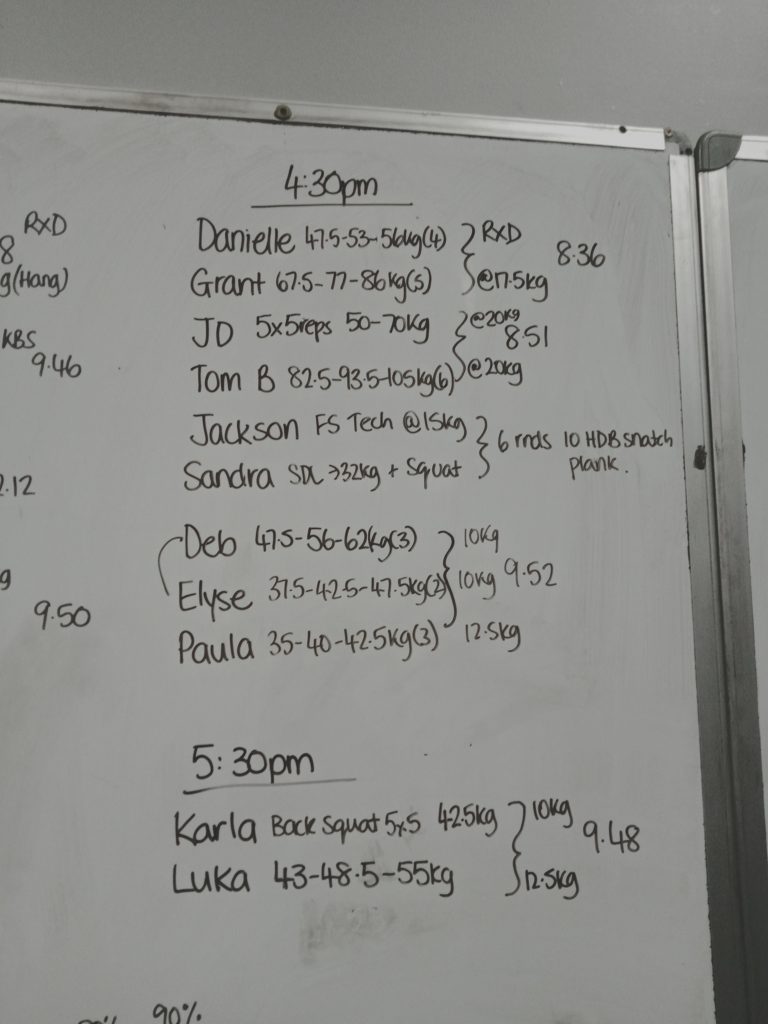 RXD
8
g(Hang)
KBS
9.46
2.12
g
9.50
4:30pm
Danielle 47.5-53-56kg(4) RXD 8.36
Grant 67.5-77-86kg(5) @17.5kg
JD 5x5reps 50-70kg @20kg 8.51
Tom B 82.5-93.5-105kg(6) @20kg
Jackson FS Tech @15kg 6 rnds 10 HDB snatch
Sandra SDL >32kg + Squat plank.
Deb 47.5-56-62kg(3) 10kg
Elyse 37.5-42.5-47.5kg(2) 10kg 9.52
Paula 35-40-42.5kg(3) 12.5kg
5:30pm
Karla Back Squat 5x5 42.5kg 10kg 9.48
Luka 43-48.5-55kg 12.5kg
90%